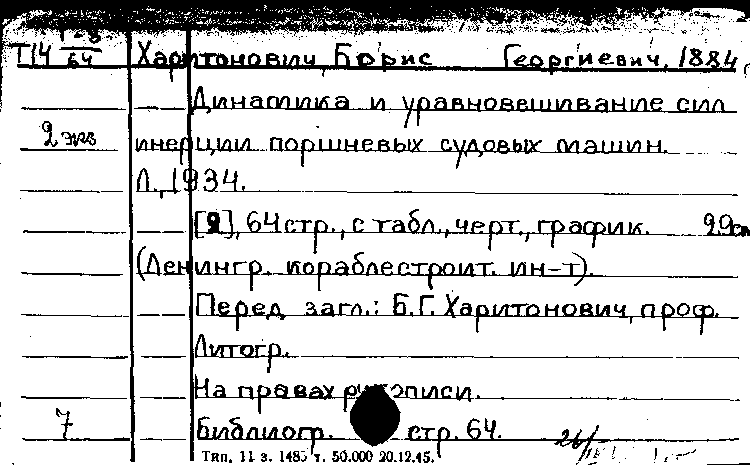 Т14 Г-8/64 Харитонович, Борис Георгиевич, 1884.
Динамика и уравновешивание сил
2 экз инерции поршневых судовых машин.
Л., 1934.
[2], 64 стр., с табл., черт., график. 29см
(Ленингр. кораблестроит. ин-т).
Перед загл.: Б.Г. Харитонович, проф.
Литогр.
На правах рукописи.
7 Библиогр. стр. 64.
Тип. 11 з. 1485 т. 50.000 20.12.45.